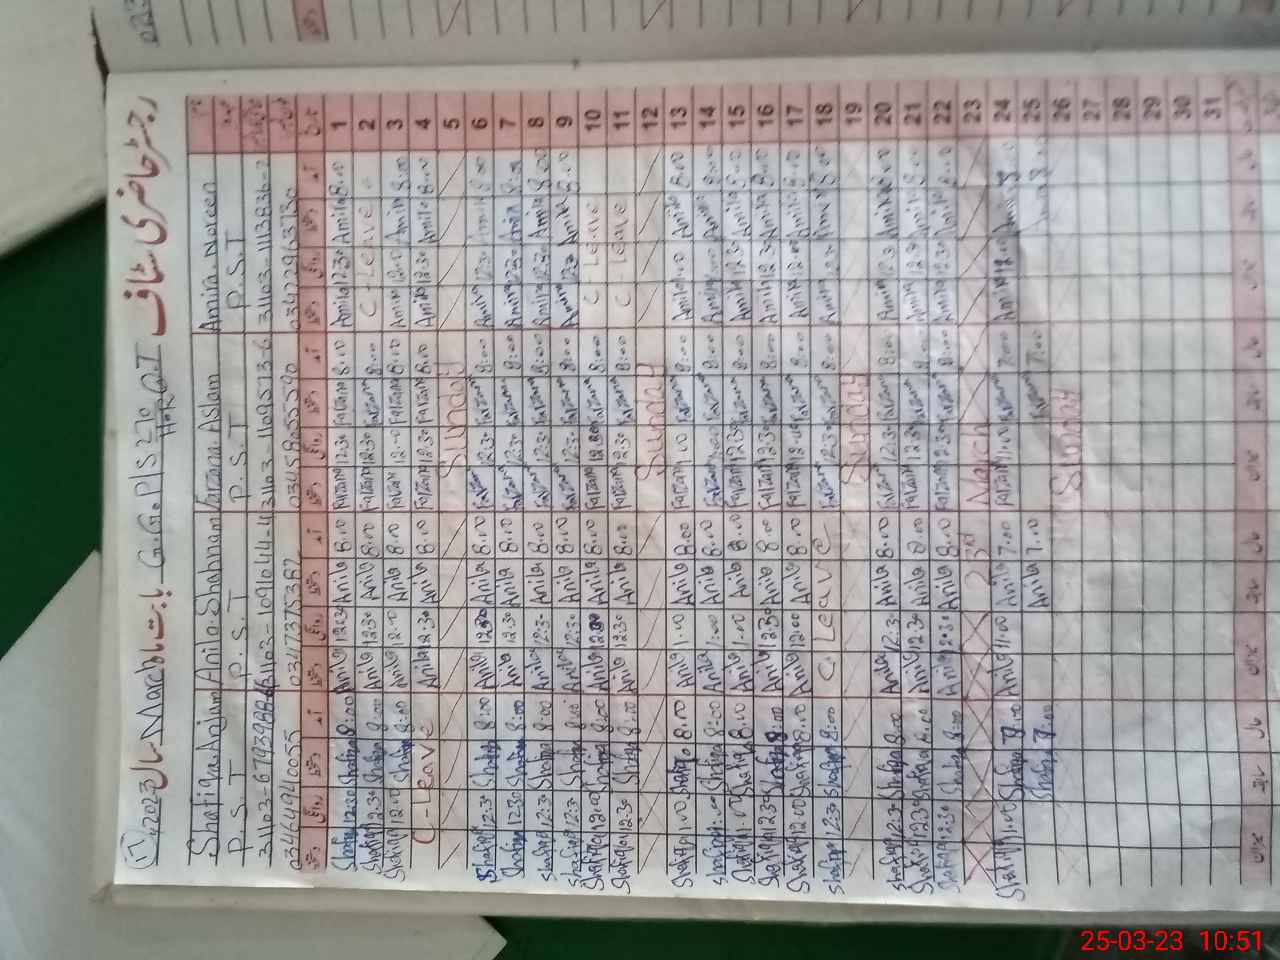 رجسٹر حاضری سٹاف G.G.P/S 270 H.R بابت ماہ March سال 2023
Amira Noreen
P.S.T
Farzana Aslam
P.S.T
03458255590
Anila Shabnam
P.S.T
03417375382
Shafiqa Anjam
P.S.T
03464940055
1 Amira 8.00 Amira 12.30 Farzana 8.00 Farzana 12.30 Anila 8.00 Anila 12.30 Shafiqa 8:00 Shafiqa 12.30
2 C - Leave Farzana 8:00 Farzana 12.30 Anila 8.00 Anila 12.30 Shafiqa 8:00 Shafiqa 12.30
3 Amira 8.00 Amira 12.00 Farzana 8.00 Farzana 12.00 Anila 8.00 Anila 12.00 Shafiqa 8:00 Shafiqa 12.00
4 Amira 8.00 Amira 12.30 Farzana 8.00 Farzana 12.30 Anila 8.00 Anila 12.30 C - Leave
5 Sunday
6 Amira 8.00 Amira 12.30 Farzana 8:00 Farzana 12.30 Anila 8.00 Anila 12.30 Shafiqa 8:00 Shafiqa 12.30
7 Amira 8.00 Amira 12.30 Farzana 8:00 Farzana 12.30 Anila 8.00 Anila 12.30 Shafiqa 8:00 Shafiqa 12.30
8 Amira 8.00 Amira 12.30 Farzana 8:00 Farzana 12.30 Anila 8.00 Anila 12.30 Shafiqa 8:00 Shafiqa 12.30
9 Amira 8.00 Amira 12.30 Farzana 8:00 Farzana 12.30 Anila 8.00 Anila 12.30 Shafiqa 8:00 Shafiqa 12.30
10 C - Leave Farzana 8:00 Farzana 12.00 Anila 8.00 Anila 12.00 Shafiqa 8:00 Shafiqa 12.00
11 C - Leave Farzana 8:00 Farzana 12.30 Anila 8.00 Anila 12.30 Shafiqa 8:00 Shafiqa 12.30
12 Sunday
13 Amira 8.00 Amira 1.00 Farzana 8:00 Farzana 1.00 Anila 8.00 Anila 1.00 Shafiqa 8.00 Shafiqa 1.00
14 Amira 8:00 Amira 1.00 Farzana 8:00 Farzana 1.00 Anila 8.00 Anila 1.00 Shafiqa 8:00 Shafiqa 1.00
15 Amira 8.00 Amira 12.30 Farzana 8:00 Farzana 12.30 Anila 8.00 Anila 1.00 Shafiqa 8.00 Shafiqa 1.00
16 Amira 8.00 Amira 12.30 Farzana 8:00 Farzana 12.30 Anila 8.00 Anila 12.30 Shafiqa 8:00 Shafiqa 12.30
17 Amira 8.00 Amira 12.00 Farzana 8:00 Farzana 12.00 Anila 8.00 Anila 12.00 Shafiqa 8.00 Shafiqa 12.00
18 Amira 8:00 Amira 12.30 Farzana 8:00 Farzana 12.30 C. Leave Shafiqa 8:00 Shafiqa 12.30
19 Sunday
20 Amira 8.00 Amira 12.30 Farzana 8:00 Farzana 12.30 Anila 8.00 Anila 12.30 Shafiqa 8.00 Shafiqa 12.30
21 Amira 8.00 Amira 12.30 Farzana 8:00 Farzana 12.30 Anila 8.00 Anila 12.30 Shafiqa 8.00 Shafiqa 12.30
22 Amira 8.00 Amira 12.30 Farzana 8:00 Farzana 12.30 Anila 8.00 Anila 12.30 Shafiqa 8:00 Shafiqa 12.30
23 23rd March
24 Amira Amira Farzana 7:00 Farzana 11.00 Anila 7.00 Anila 11.00 Shafiqa Shafiqa 11.00
25 Amira Farzana 7:00 Anila 7.00 Shafiqa 7:00
26 Sunday
27
28
29
30
31
25-03-23 10:51